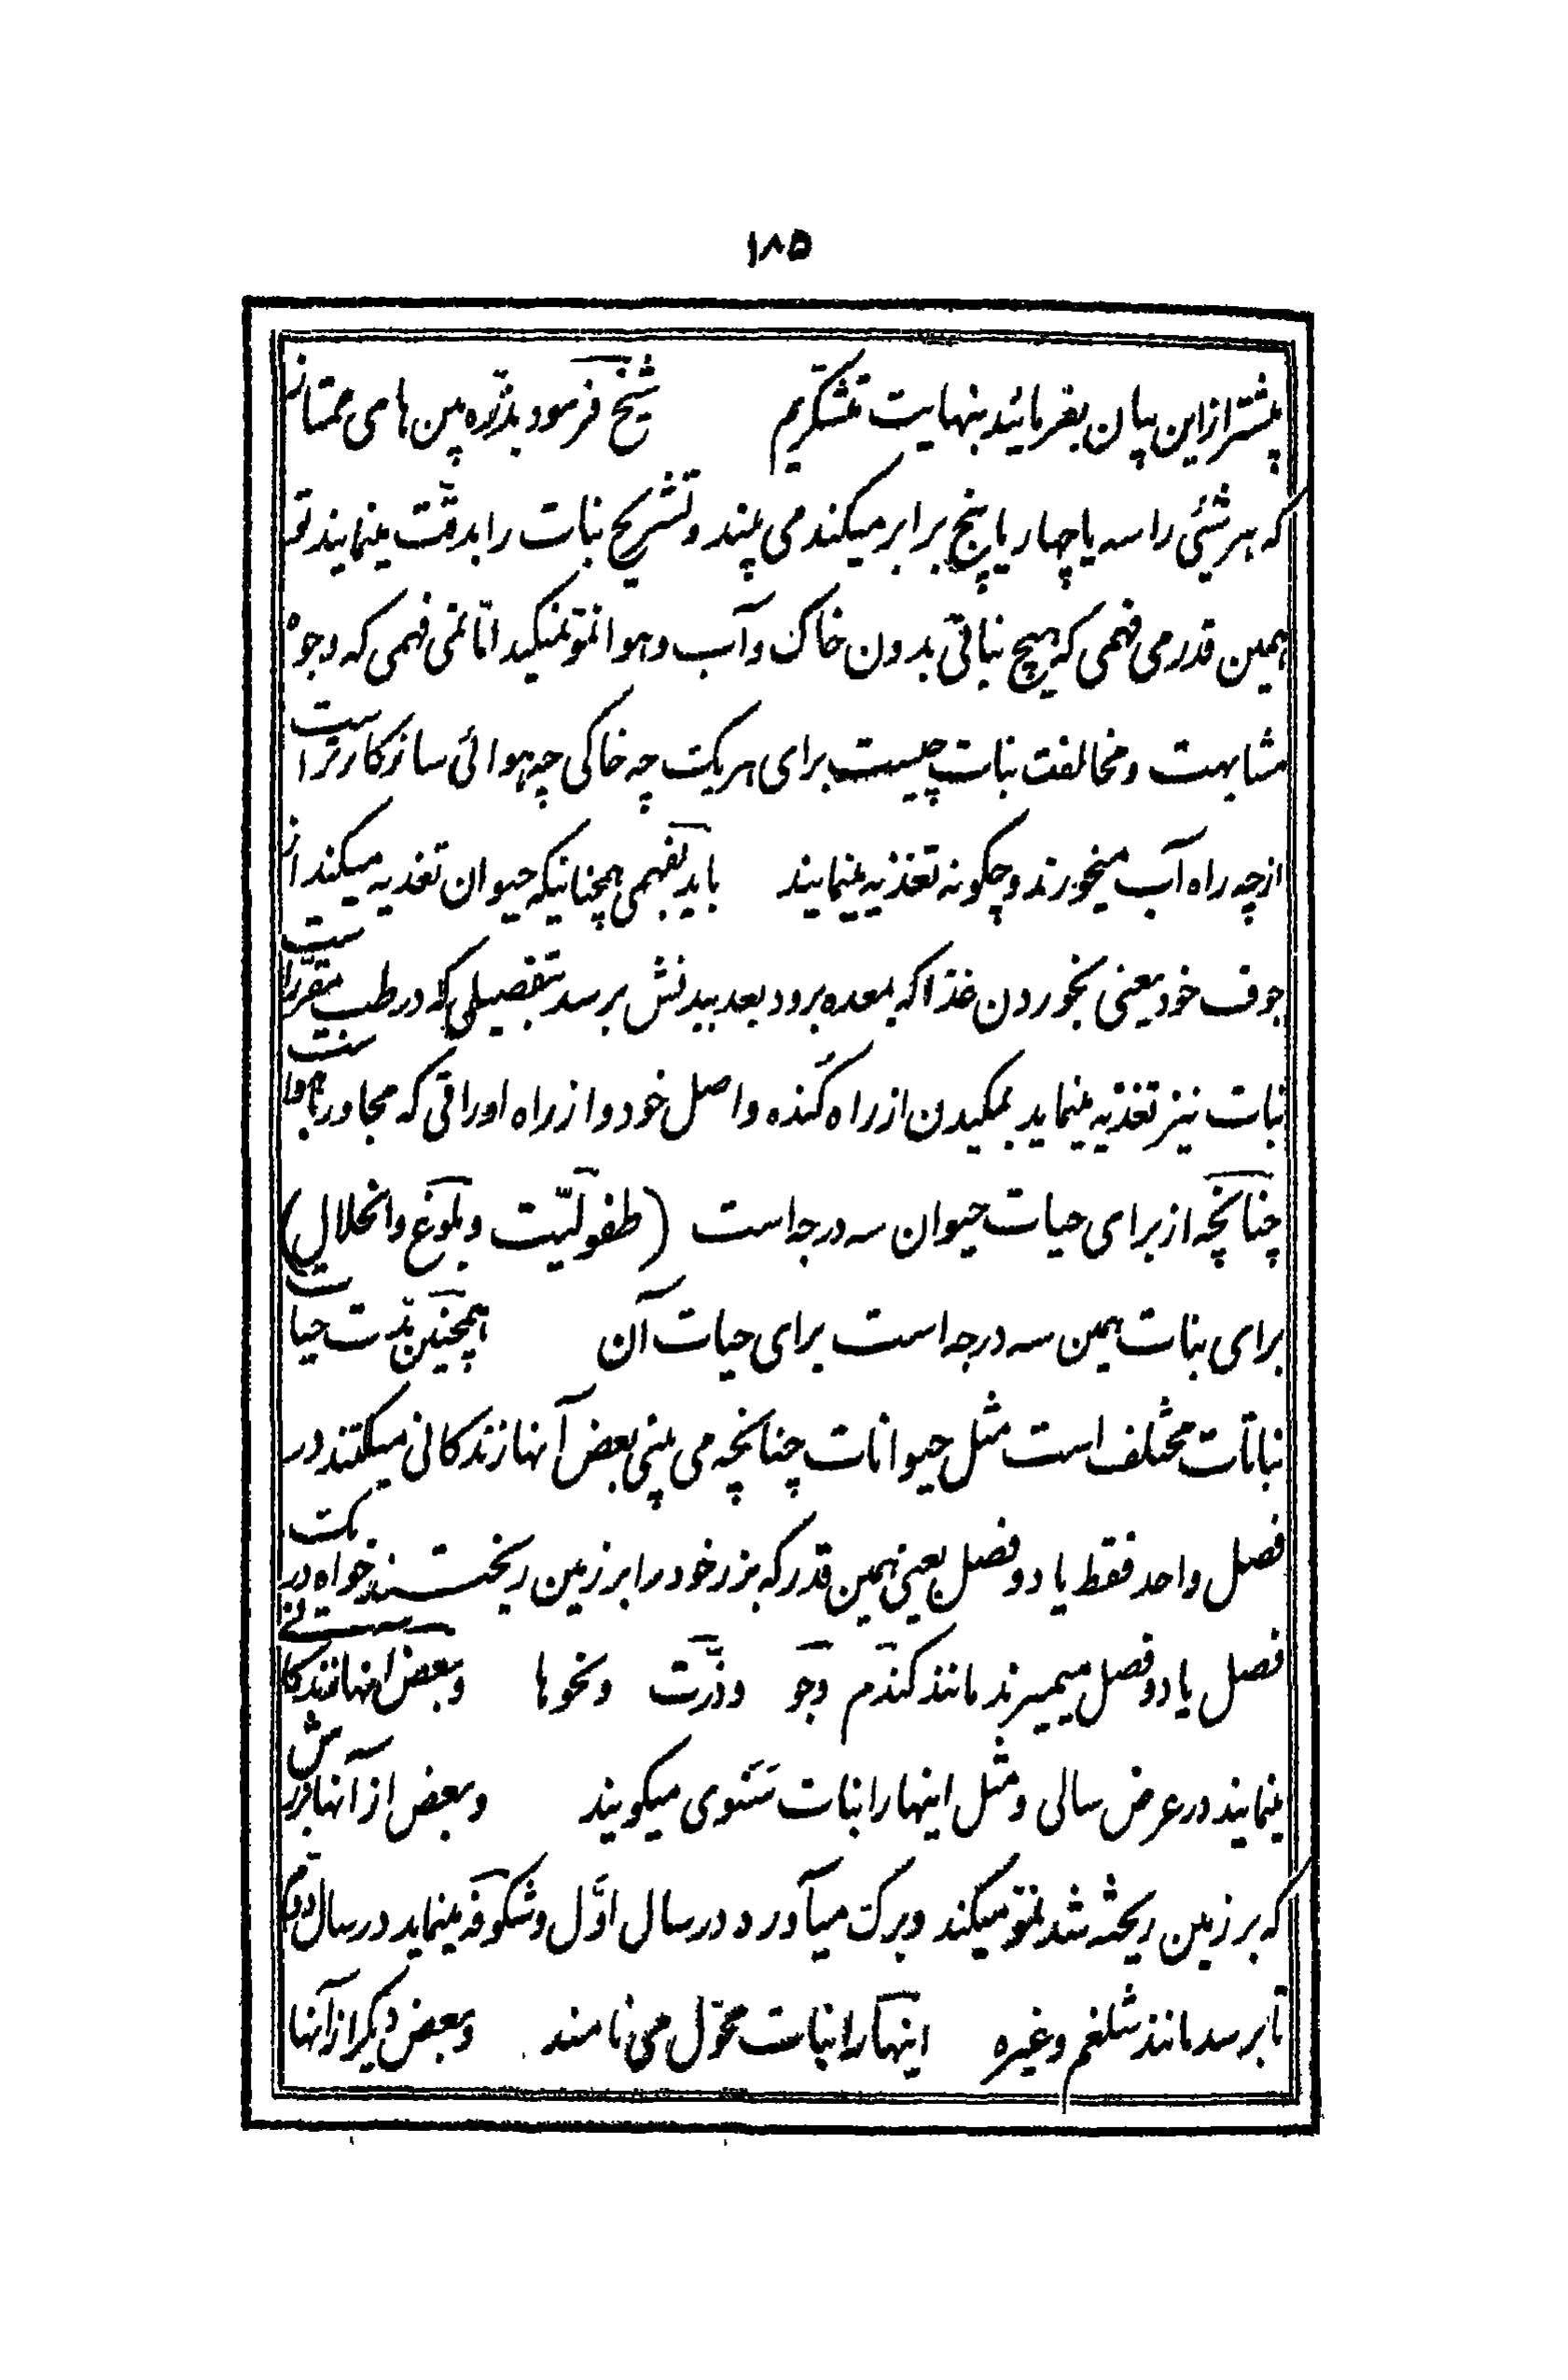 ۱۸۵
پیشتر از این بیان بفرمائید بنهایت متشکریم شیخ فرمود بذرّه بین های ممتاز
که هر شیئی را سه یا چهار یا پنج برابر میکند می بیند و تشریح نبات را بدقّت مینمایند تو
همین قدر می فهمی که هیچ نباتی بدون خاک و آب و هوا نموّ نمیکند امّا نمی فهمی که وجوه
مشابهت و مخالفت نبات چیست برای هر یک چه خاکی چه هوائی سازکارتر است
از چه راه آب میخورند و چکونه تغذیه مینمایند باید بفهمی همچنانیکه حیوان تغذیه میکند از
جوف خود یعنی بخوردن غذا که بمعده برود بعد ببدنش برسد بتفصیلی که در طب مقرّر است
نبات نیز تغذیه مینماید بمکیدن از راه کنده و اصل خود و از راه اوراقی که مجاور با هواست
چنانچه از برای حیات حیوان سه درجه است (طفولیّت و بلوغ و انحلال)
برای نبات همین سه درجه است برای حیات آن همچنین مدّت حیات
نباتات مختلف است مثل حیوانات چنانچه می بینی بعض آنها زندکانی میکنند در
فصل واحد فقط یا دو فصل یعنی همین قدر که بزر خود را بر زمین ریختند خواه در یک
فصل یا دو فصل میمیرند مانند کندم و جو و ذرّت و نحوها و بعض انها زندکانی
مینمایند در عرض سالی و مثل اینها را نبات سَنَوی میکویند و بعض از آنها بزرش
که بر زمین ریخته شد نموّ میکند و برک میآورد در سال اوّل و شکوفه مینماید در سال دوّم
تا برسد مانند شلغم و غیره اینها را نبات محوّل می نامند و بعض دیکر از آنها